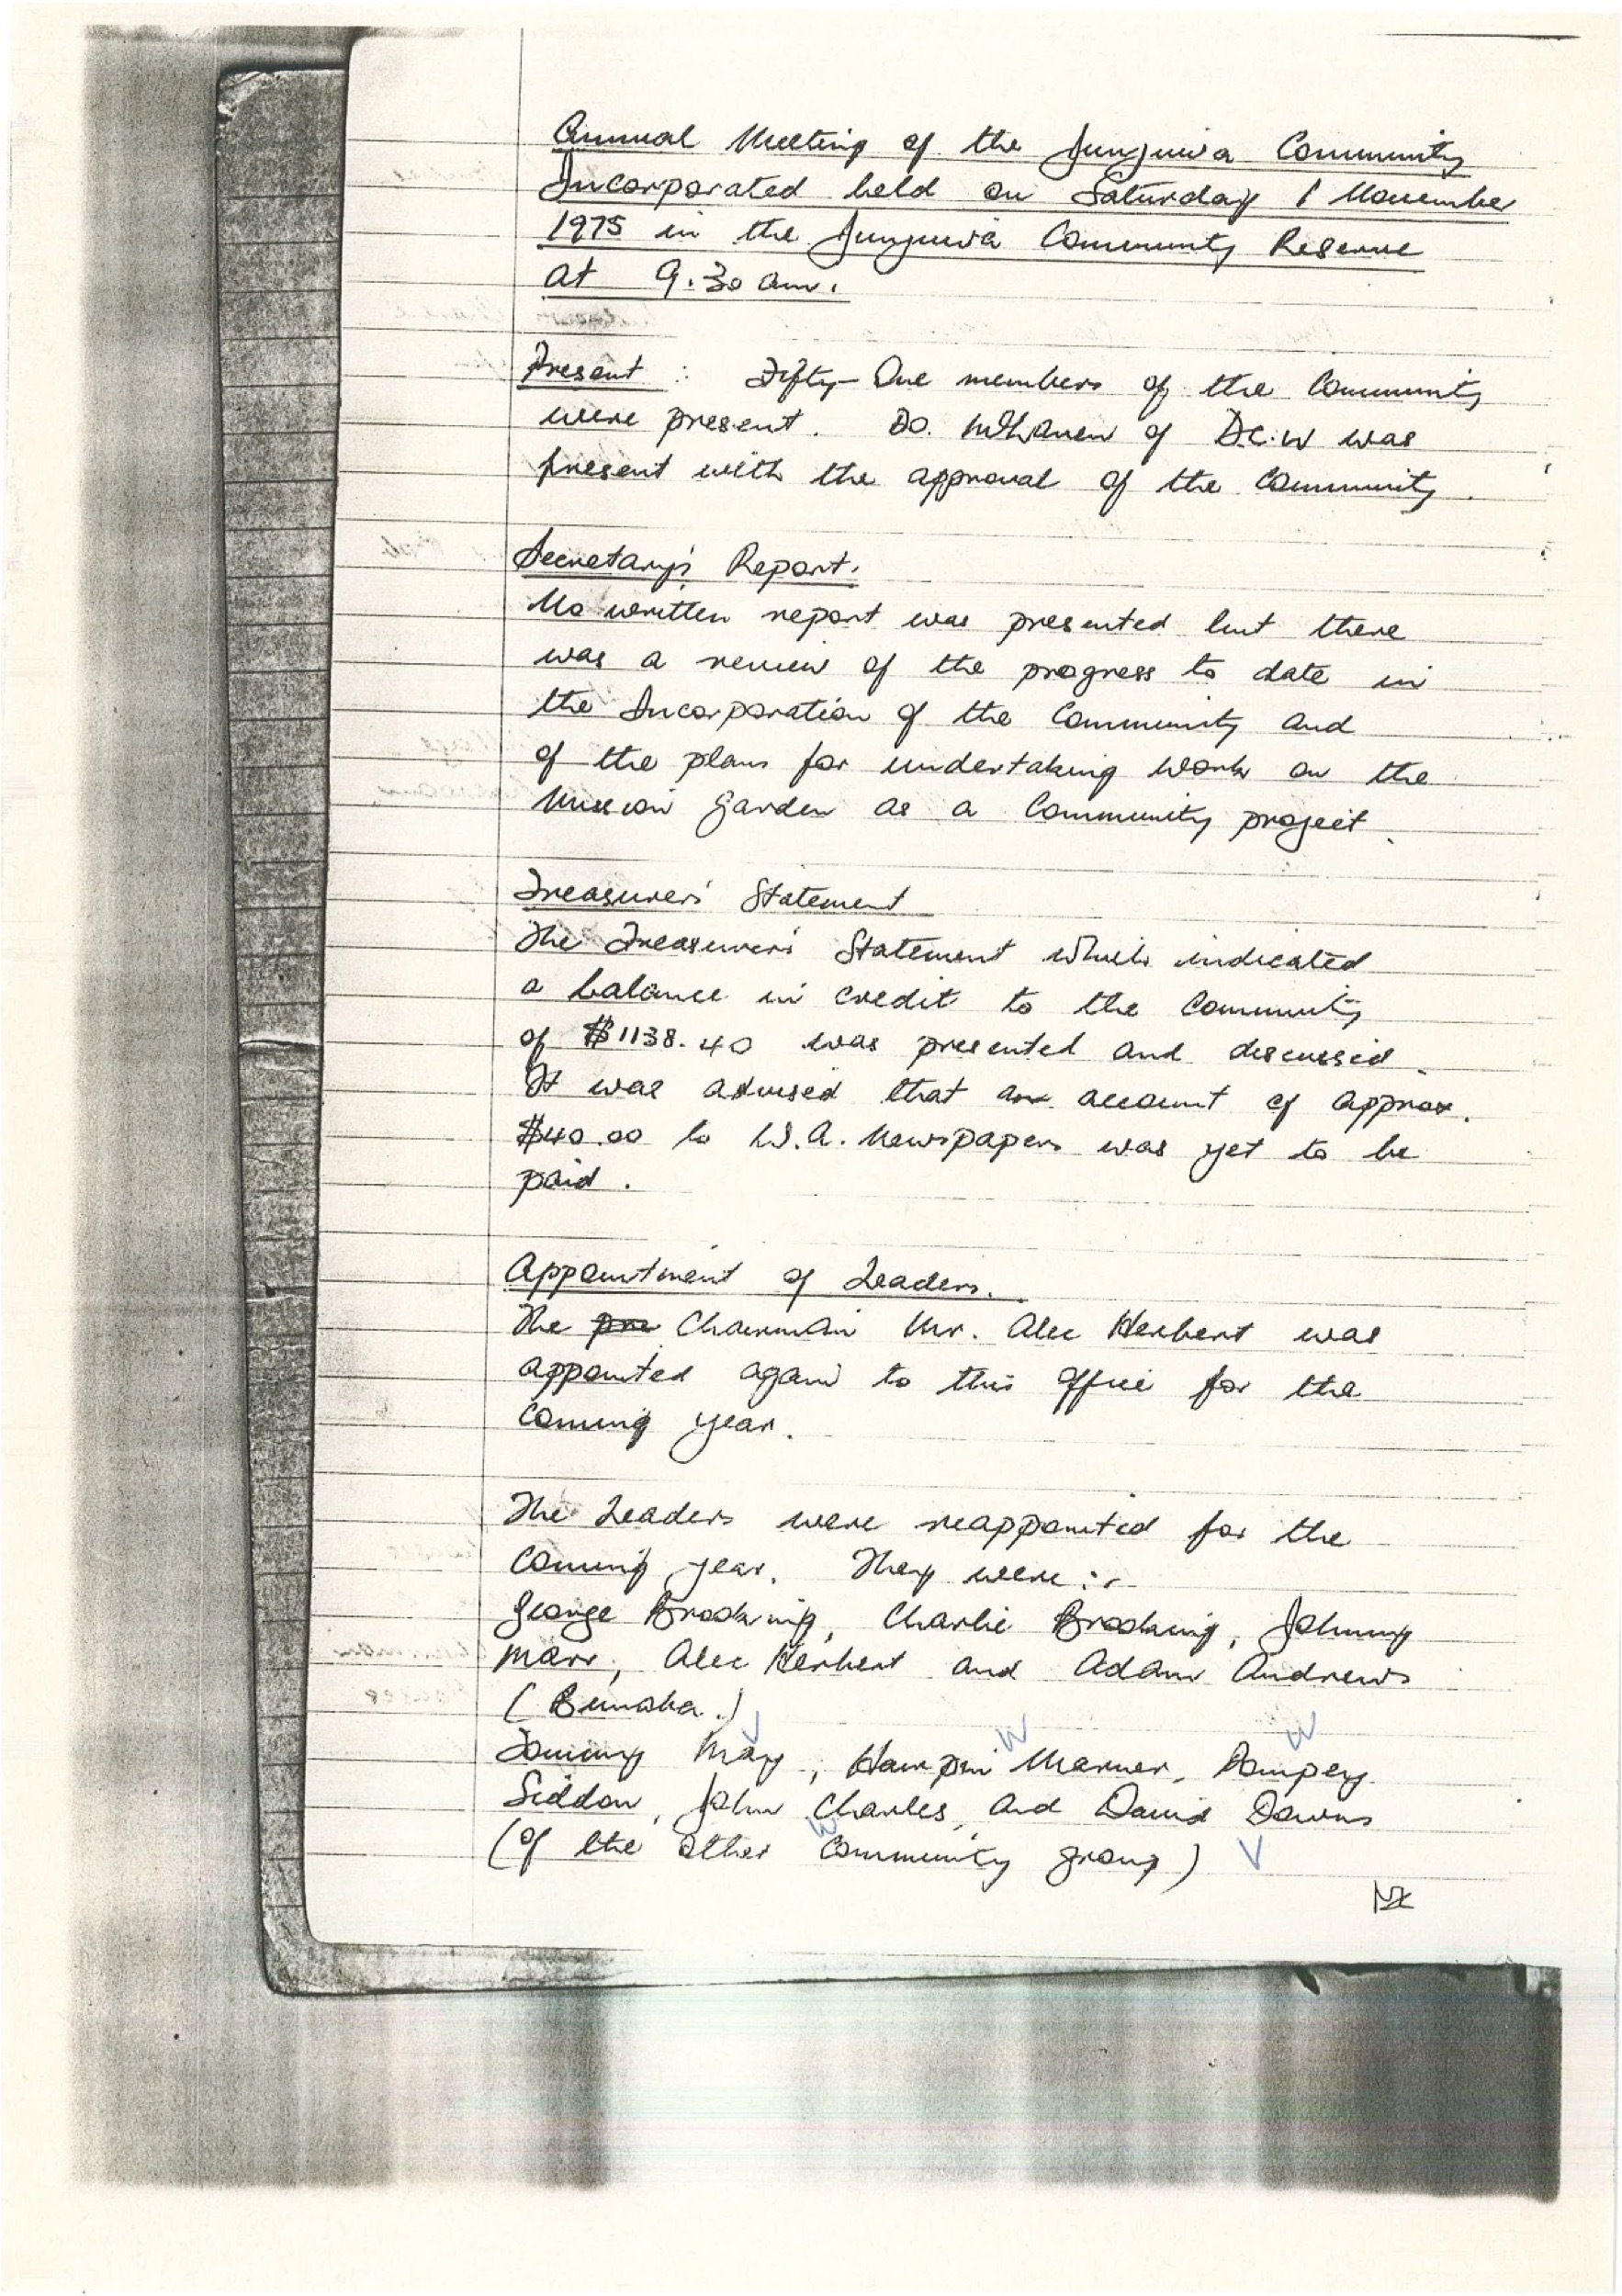 Annual Meeting of the Junjuwa Community
Incorporated held on Saturday 1 November
1975 in the Junjuwa Community Reserve
at 9.30 am.
Present : Fifty-One members of the Community
were present. DO. of D.C.W was
present with the approval of the Community.
Secretary's Report.
No written report was presented but there
was a review of the progress to date in
the Incorporation of the Community and
of the plans for undertaking work on the
Mission garden as a Community project.
Treasurer's Statement
The Treasurer's Statement which indicated
a balance in credit to the Community
of $1138.40 was presented and discussed.
It was advised that an account of approx.
$40.00 to W.A. Newspapers was yet to be
paid.
Appointment of Leaders.
The Chairman Mr. Alec Herbert was
appointed again to this office for the
coming year.
The Leaders were reappointed for the
coming year. They were :-
George Brooking, Charlie Brooking, Johnny
Marr, Alec Herbert and Adam Andrews
(Bunaba.)
Tommy May, Warner, Pompey
Siddon, John Charles, and David Downs
(of the other Community group)